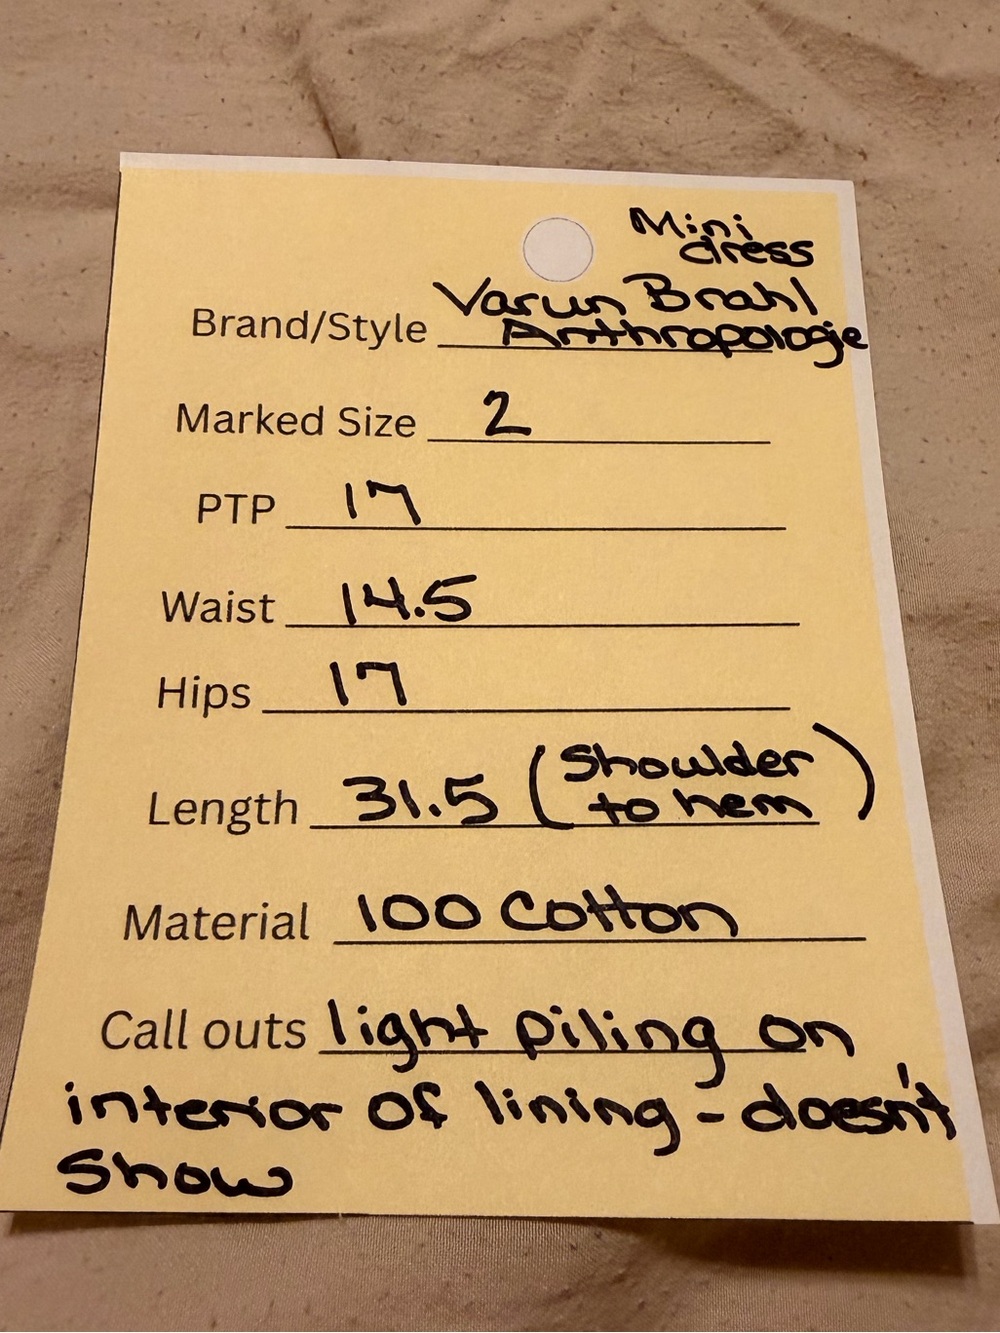 Mini
dress
Varun Brahl
Brand/Style Anthropologie
Marked Size 2
PTP 17
Waist 14.5
Hips 17
Length 31.5 (Shoulder
to hem)
Material 100 Cotton
Call outs light piling on
interior of lining - doesn't
show